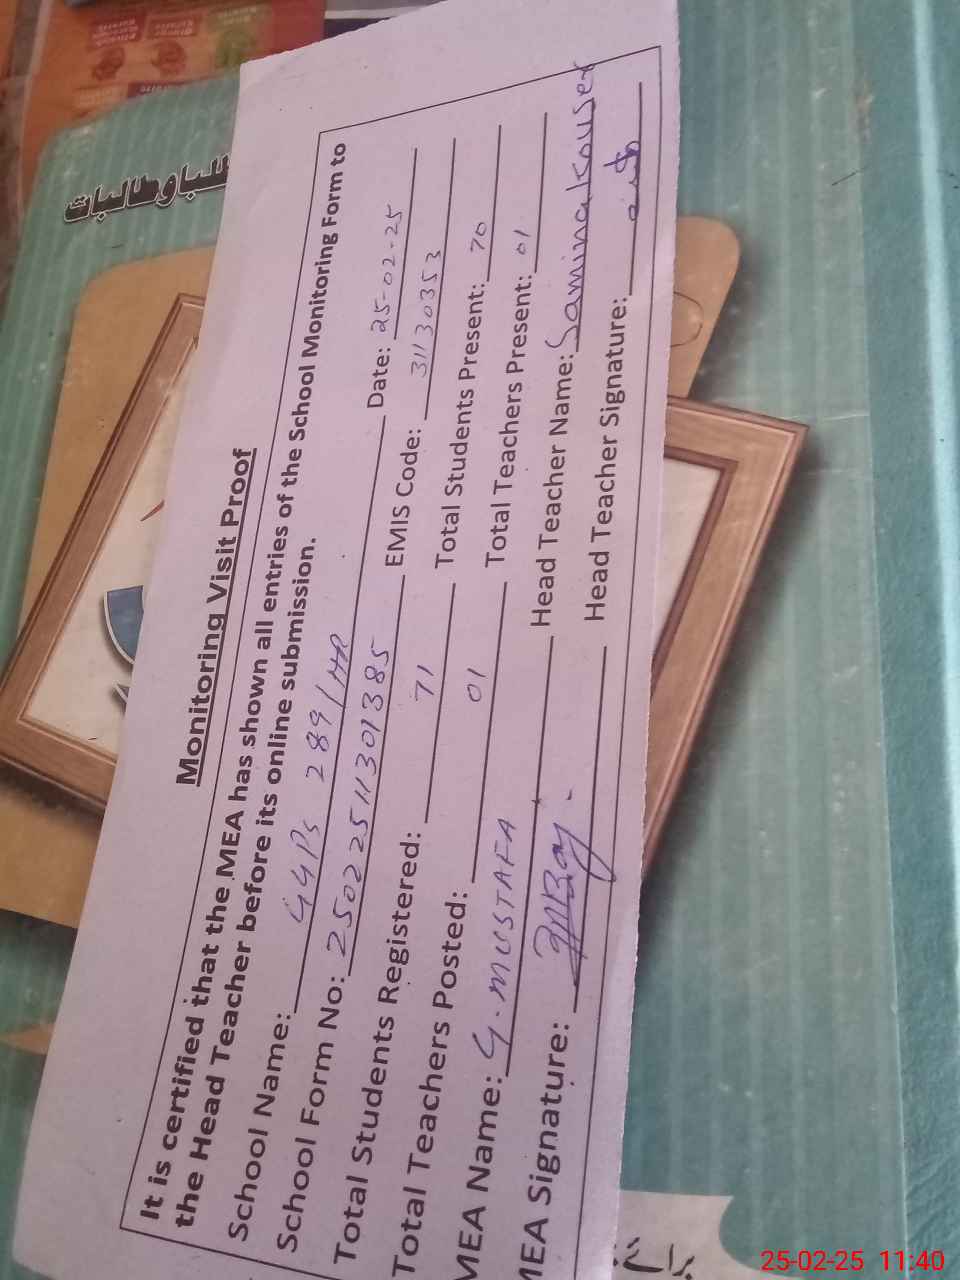 Monitoring Visit Proof
It is certified that the MEA has shown all entries of the School Monitoring Form to
the Head Teacher before its online submission.
School Name: GGPS 289/HR Date: 25-02-25
School Form No: 25022511301385 EMIS Code: 31130353
Total Students Registered: 71 Total Students Present: 70
Total Teachers Posted: 01 Total Teachers Present: 01
MEA Name: G. MUSTAFA Head Teacher Name: Samina Kouser
MEA Signature: Head Teacher Signature:
طلبا و طالبات
25-02-25 11:40